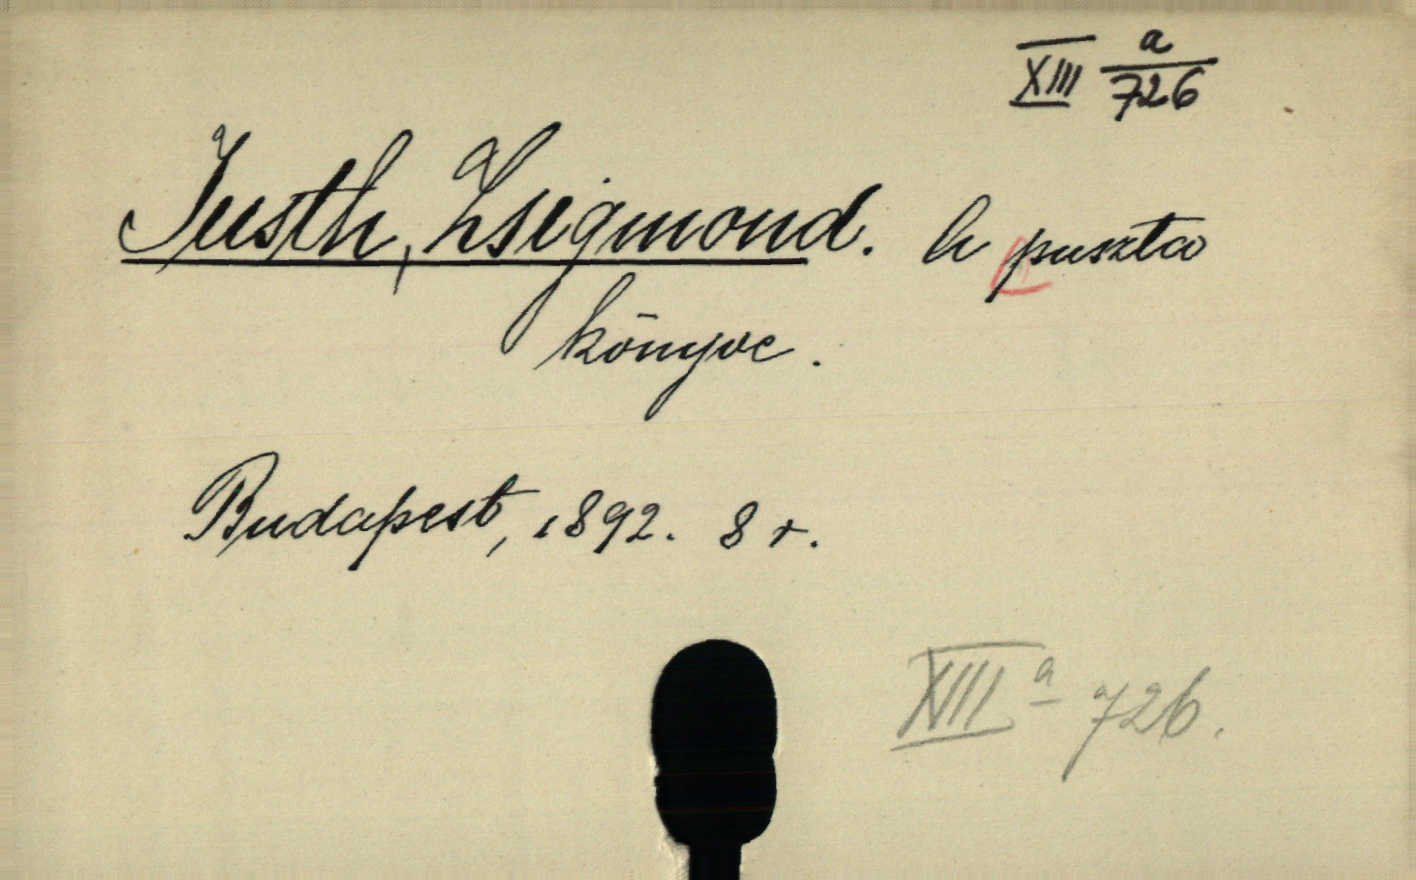 XIII a/726
Justh, Zsigmond. A puszta
könyve.
Budapest, 1892. 8 r.
XIII a - 726.